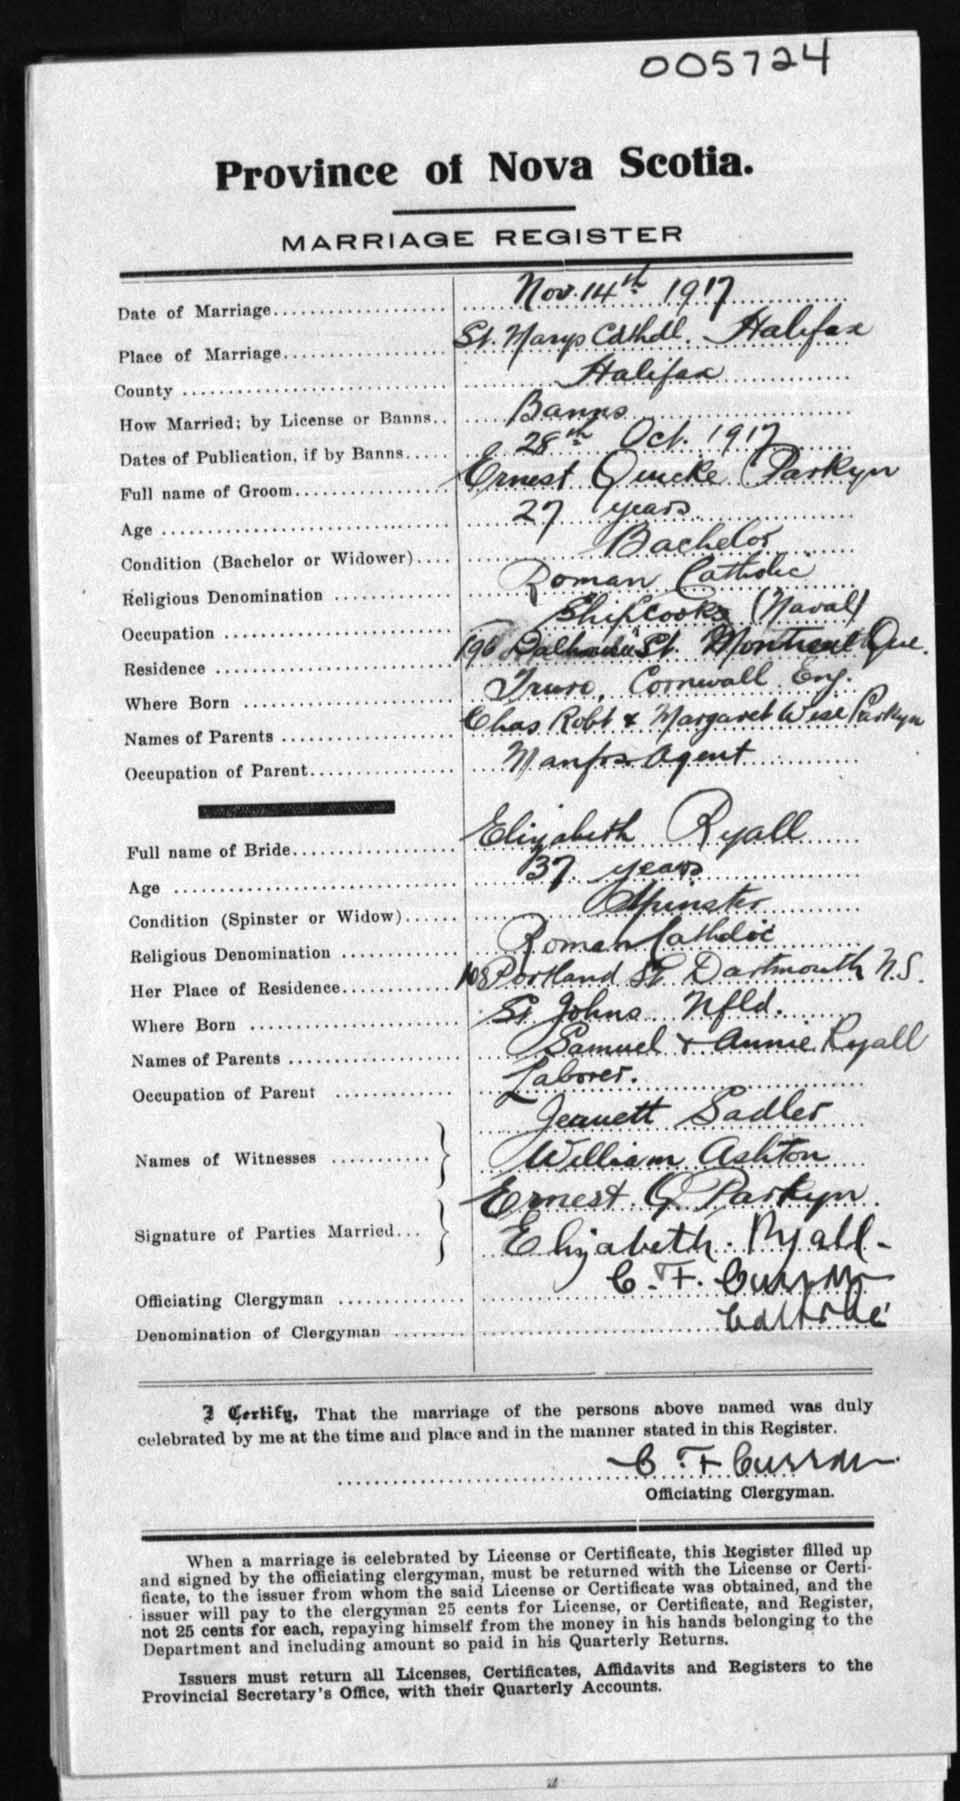 005724
Province of Nova Scotia.
MARRIAGE REGISTER
Date of Marriage Nov. 14th 1917
Place of Marriage St. Marys Cathdl. Halifax
County Halifax
How Married; by License or Banns Banns
Dates of Publication, if by Banns 28th Oct. 1917
Full name of Groom Ernest Quicke Parkyn
Age 27 years
Condition (Bachelor or Widower) Bachelor
Religious Denomination Roman Catholic
Occupation Ship Cooks (Naval)
Residence 196 Dalhousie St. Montreal Que.
Where Born Truro, Cornwall Eng.
Names of Parents Chas Robt & Margaret Wise Parkyn
Occupation of Parent Manfrs Agent
Full name of Bride Elizabeth Ryall
Age 37 years
Condition (Spinster or Widow) Spinster
Religious Denomination Roman Catholic
Her Place of Residence 108 Portland St Dartmouth N.S.
Where Born St Johns Nfld.
Names of Parents Samuel & Annie Ryall
Occupation of Parent Laborer.
Jeanett Sadler
Names of Witnesses William Ashton
Ernest Q Parkyn
Signature of Parties Married Elizabeth Ryall
Officiating Clergyman C. F. Curran
Denomination of Clergyman Catholic
I Certify, That the marriage of the persons above named was duly
celebrated by me at the time and place and in the manner stated in this Register.
C. F Curran
Officiating Clergyman.
When a marriage is celebrated by License or Certificate, this Register filled up
and signed by the officiating clergyman, must be returned with the License or Certi-
ficate, to the issuer from whom the said License or Certificate was obtained, and the
issuer will pay to the clergyman 25 cents for License, or Certificate, and Register,
not 25 cents for each, repaying himself from the money in his hands belonging to the
Department and including amount so paid in his Quarterly Returns.
Issuers must return all Licenses, Certificates, Affidavits and Registers to the
Provincial Secretary's Office, with their Quarterly Accounts.